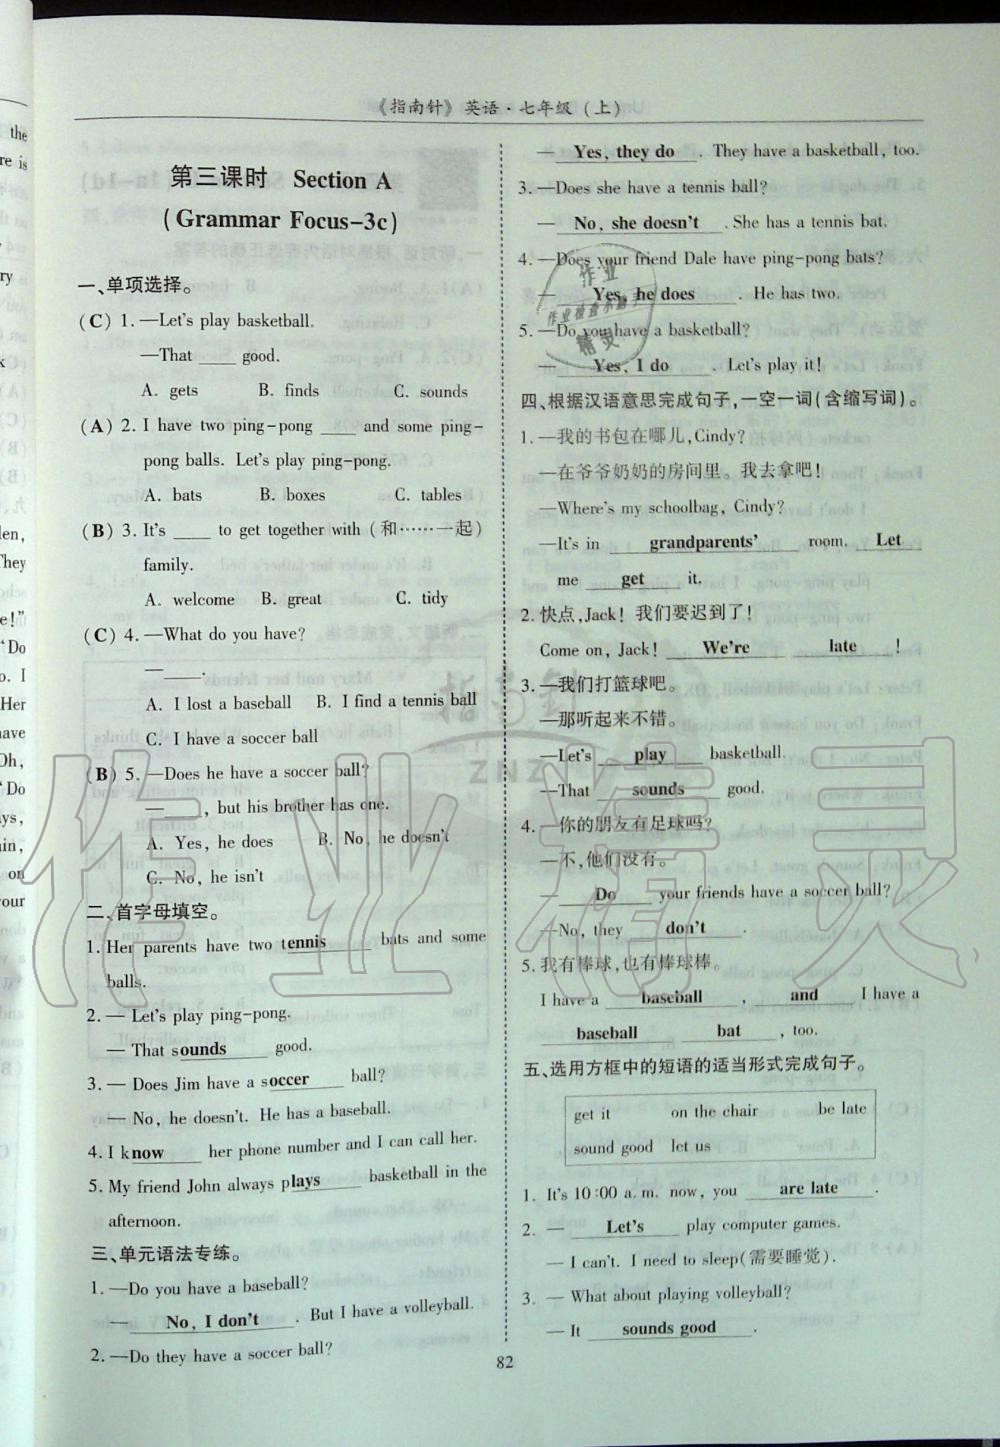 《指南针》 英语·七年级（上）
第三课时 Section A
(Grammar Focus-3c)
一、单项选择。
(C) 1. —Let's play basketball.
—That ____ good.
A. gets B. finds C. sounds
(A) 2. I have two ping-pong ____ and some ping-
pong balls. Let's play ping-pong.
A. bats B. boxes C. tables
(B) 3. It's ____ to get together with (和……一起)
family.
A. welcome B. great C. tidy
(C) 4. —What do you have?
—____.
A. I lost a baseball B. I find a tennis ball
C. I have a soccer ball
(B) 5. —Does he have a soccer ball?
—____, but his brother has one.
A. Yes, he does B. No, he doesn't
C. No, he isn't
二、首字母填空。
1. Her parents have two tennis bats and some
balls.
2. — Let's play ping-pong.
— That sounds good.
3. — Does Jim have a soccer ball?
— No, he doesn't. He has a baseball.
4. I know her phone number and I can call her.
5. My friend John always plays basketball in the
afternoon.
三、单元语法专练。
1. —Do you have a baseball?
— No, I don't. But I have a volleyball.
2. —Do they have a soccer ball?
— Yes, they do. They have a basketball, too.
3. —Does she have a tennis ball?
— No, she doesn't. She has a tennis bat.
4. —Does your friend Dale have ping-pong bats?
— Yes, he does. He has two.
5. —Do you have a basketball?
— Yes, I do. Let's play it!
四、根据汉语意思完成句子,一空一词(含缩写词)。
1. —我的书包在哪儿,Cindy?
—在爷爷奶奶的房间里。我去拿吧!
—Where's my schoolbag, Cindy?
—It's in grandparents' room. Let
me get it.
2. 快点,Jack! 我们要迟到了!
Come on, Jack! We're late !
3. —我们打篮球吧。
—那听起来不错。
—Let's play basketball.
—That sounds good.
4. —你的朋友有足球吗?
—不,他们没有。
— Do your friends have a soccer ball?
—No, they don't.
5. 我有棒球,也有棒球棒。
I have a baseball, and I have a
baseball bat, too.
五、选用方框中的短语的适当形式完成句子。
get it on the chair be late
sound good let us
1. It's 10:00 a. m. now, you are late.
2. — Let's play computer games.
— I can't. I need to sleep(需要睡觉).
3. — What about playing volleyball?
— It sounds good.
82
作业
作业检查小助手
精灵
指南针
ZNZ
作业精灵